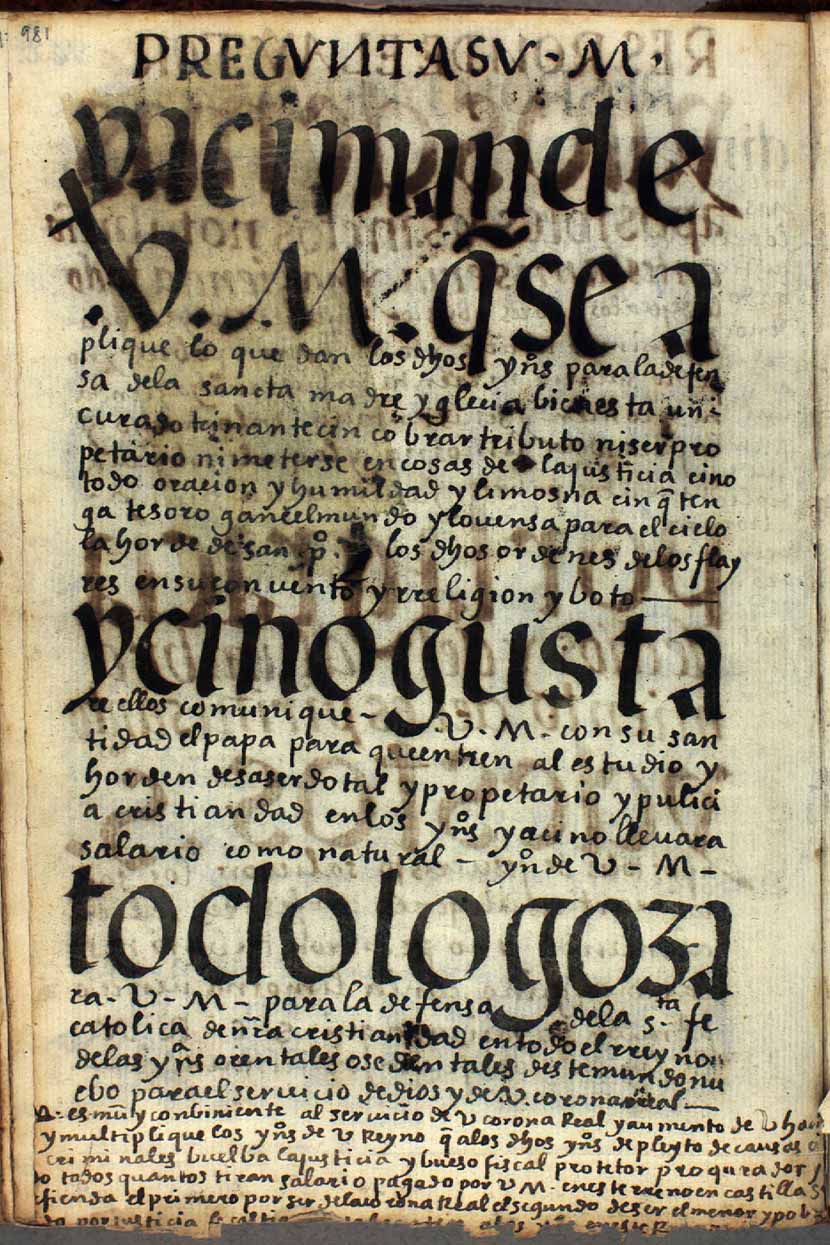 981
PREGVNTA SV - M -
yaci mande
V. M. q̃ se a
plique lo que dan los dhos yn̄s para la defen
sa de la sancta madre yglecia bien esta un -
curado tcinante cin cobrar tributo ni ser pro
petario ni meterse en cosas de la justicia cino
todo oracion y humildad y limosna cin q̃ ten
ga tesoro gan̄ el mundo y lo uensa para el cielo
la horde de san p̊. los dhos ordenes de los flay
res en su conuento y rreligion y boto —
y ci no gusta
re ellos comunique - V - M - con su san
tidad el papa para que entren al estudio y
horden de saserdotal y propetario y pulici
a cristiandad en los yn̊s y aci no lleuara
salario como natural - yn̊ de V - M -
todo lo goza
ra - V - M - para la defensa de la s.ta fe
catolica de nr̄a cristiandad en todo el rreyno
de las yn̄s orentales osedentales deste mundo nu
ebo para el seruicio de dios y de V. corona rreal —
es muy conbiniente al seruicio de V corona Real y aumento de V
y multiplique los yn̊s de V Reyno q̃ a los dhos yn̊s de pleyto de causas
criminales buelba la justicia y bueso fiscal protetor proqurador
todos quantos tiran salario pagado por V M - en este rreno en castilla
defienda el primero por ser de la corona Real el segundo de ser el menor y pob
por justicia